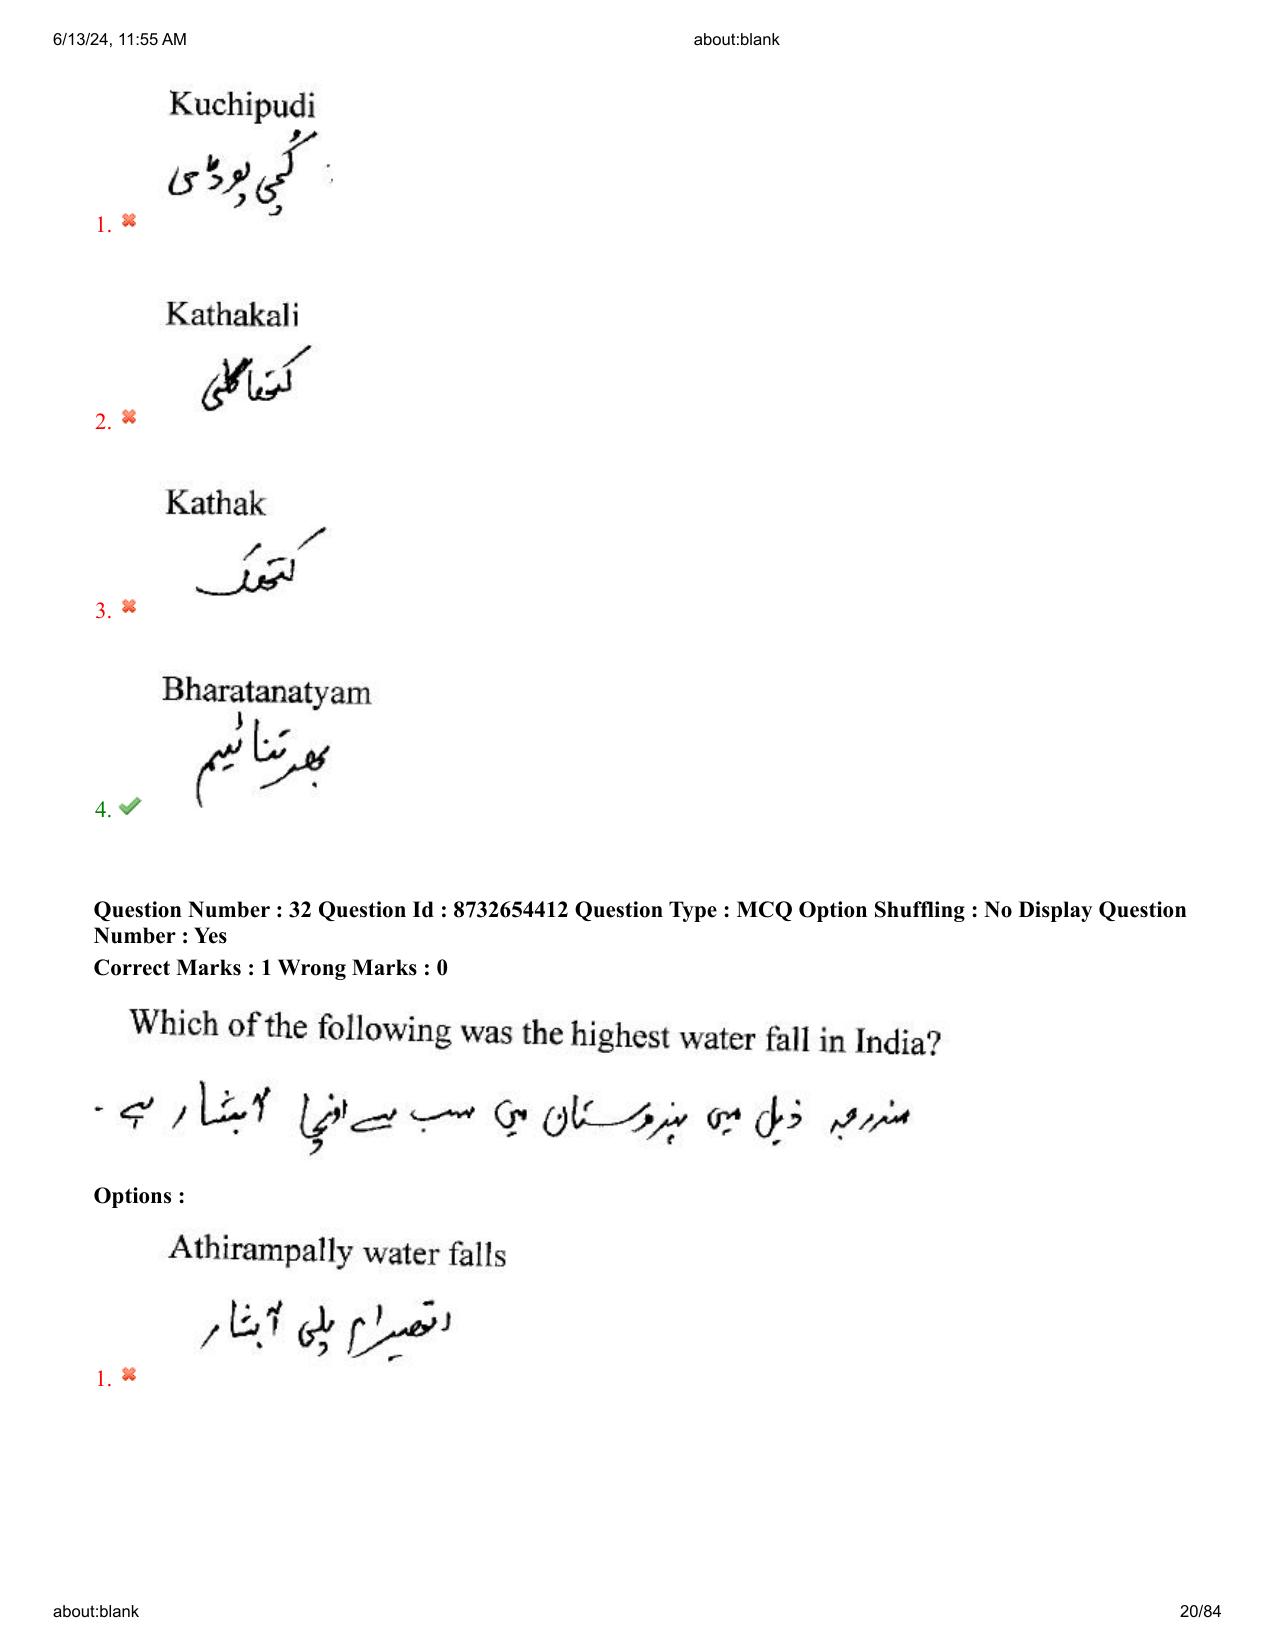 6/13/24, 11:55 AM about:blank
Kuchipudi
کُچی پوڈی
1.
Kathakali
کتھاکلی
2.
Kathak
کتھک
3.
Bharatanatyam
بھرتناٹیم
4.
Question Number : 32 Question Id : 8732654412 Question Type : MCQ Option Shuffling : No Display Question
Number : Yes
Correct Marks : 1 Wrong Marks : 0
Which of the following was the highest water fall in India?
مندرجہ ذیل میں ہندوستان میں سب سے اونچا آبشار ہے ۔
Options :
Athirampally water falls
اتھیرام پلی آبشار
1.
about:blank 20/84